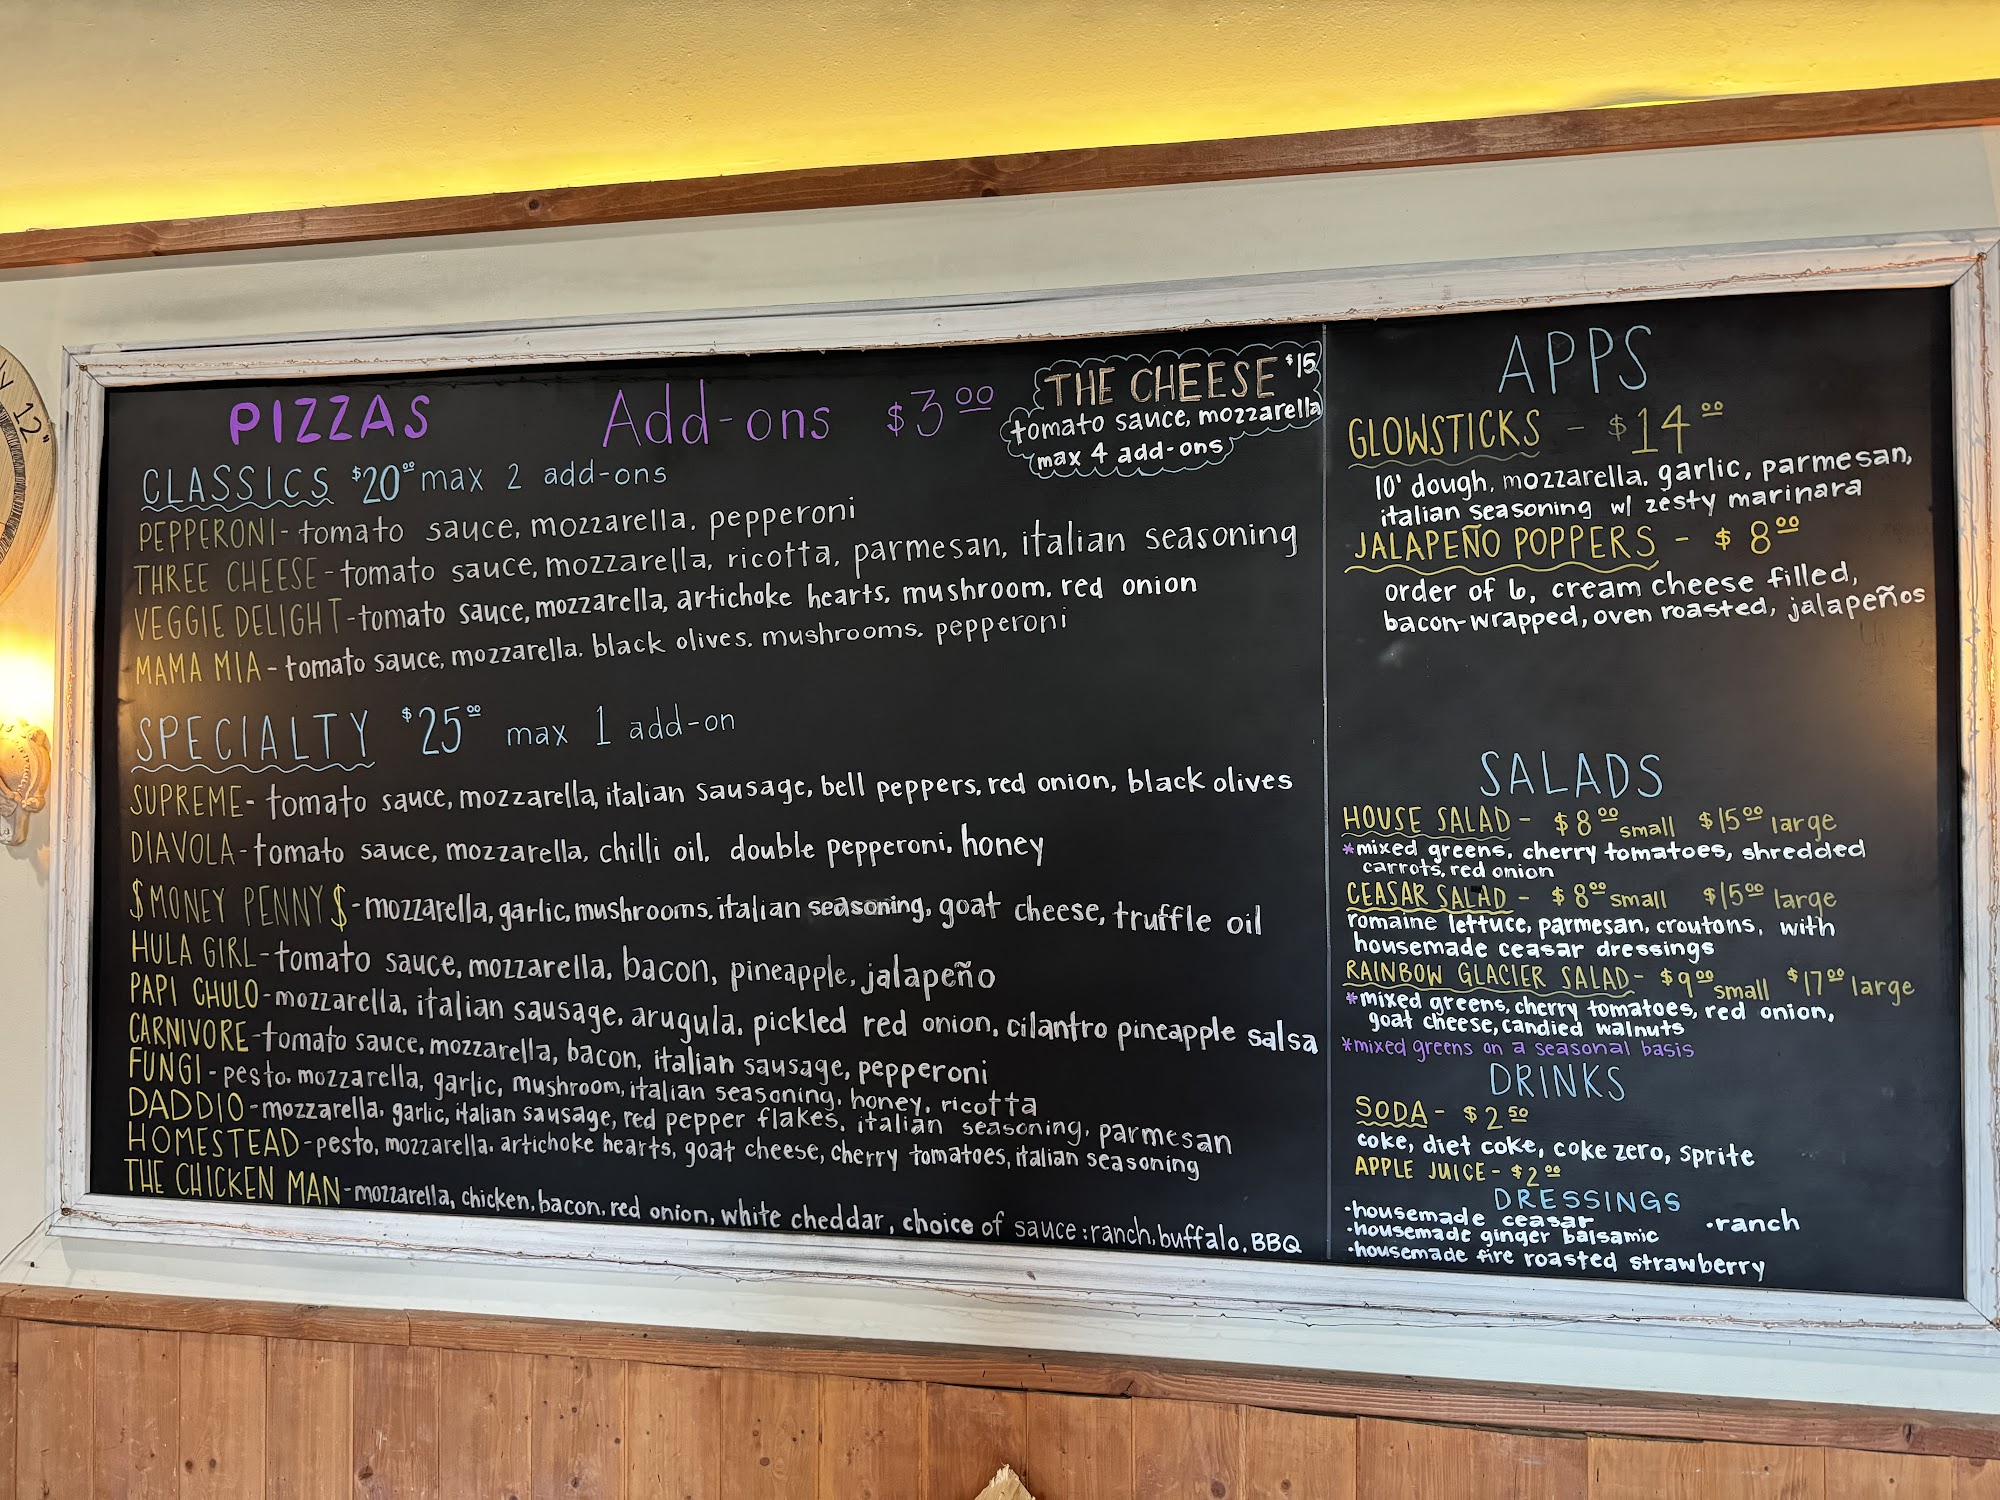 12"
PIZZAS
Add-ons $3.00
THE CHEESE $15
tomato sauce, mozzarella
max 4 add-ons
CLASSICS $20.00 max 2 add-ons
PEPPERONI - tomato sauce, mozzarella, pepperoni
THREE CHEESE - tomato sauce, mozzarella, ricotta, parmesan, italian seasoning
VEGGIE DELIGHT - tomato sauce, mozzarella, artichoke hearts, mushroom, red onion
MAMA MIA - tomato sauce, mozzarella, black olives, mushrooms, pepperoni
SPECIALTY $25.00 max 1 add-on
SUPREME - tomato sauce, mozzarella, italian sausage, bell peppers, red onion, black olives
DIAVOLA - tomato sauce, mozzarella, chilli oil, double pepperoni, honey
$MONEY PENNY$ - mozzarella, garlic, mushrooms, italian seasoning, goat cheese, truffle oil
HULA GIRL - tomato sauce, mozzarella, bacon, pineapple, jalapeño
PAPI CHULO - mozzarella, italian sausage, arugula, pickled red onion, cilantro pineapple salsa
CARNIVORE - tomato sauce, mozzarella, bacon, italian sausage, pepperoni
FUNGI - pesto, mozzarella, garlic, mushroom, italian seasoning, honey, ricotta
DADDIO - mozzarella, garlic, italian sausage, red pepper flakes, italian seasoning, parmesan
HOMESTEAD - pesto, mozzarella, artichoke hearts, goat cheese, cherry tomatoes, italian seasoning
THE CHICKEN MAN - mozzarella, chicken, bacon, red onion, white cheddar, choice of sauce: ranch, buffalo, BBQ
APPS
GLOWSTICKS - $14.00
10' dough, mozzarella, garlic, parmesan,
italian seasoning w/ zesty marinara
JALAPEÑO POPPERS - $8.00
order of 6, cream cheese filled,
bacon-wrapped, oven roasted, jalapeños
SALADS
HOUSE SALAD - $8.00 small $15.00 large
*mixed greens, cherry tomatoes, shredded
carrots, red onion
CEASAR SALAD - $8.00 small $15.00 large
romaine lettuce, parmesan, croutons, with
housemade ceasar dressings
RAINBOW GLACIER SALAD - $9.00 small $17.00 large
*mixed greens, cherry tomatoes, red onion,
goat cheese, candied walnuts
*mixed greens on a seasonal basis
DRINKS
SODA - $2.50
coke, diet coke, coke zero, sprite
APPLE JUICE - $2.00
DRESSINGS
•housemade ceasar •ranch
•housemade ginger balsamic
•housemade fire roasted strawberry